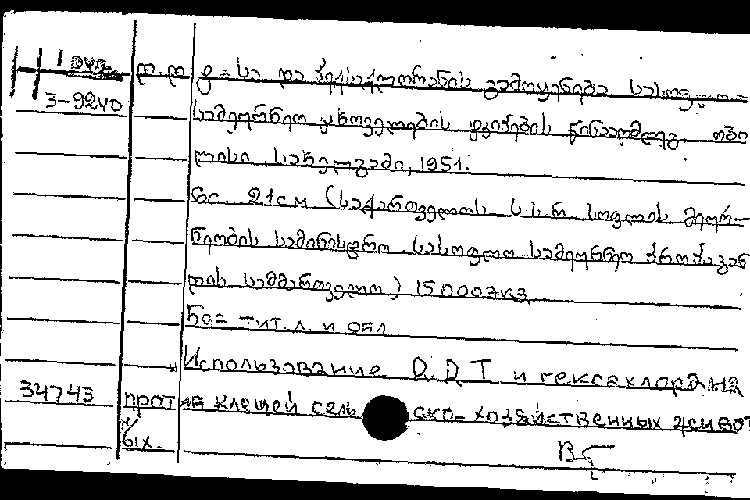 დ.დ ტ-სა და ჰექსაქლორანის გამოყენება სასოფლო-
3-9240
სამეურნეო ცხოველების ტკიპების წინააღმდეგ. თბი
ლისი სახელგამი, 1951.
6с. 21см (საქართველოს ს.ს.რ. სოფლის მეურ-
ნეობის სამინისტრო. სასოფლო სამეურნეო პროპაგან
დის სამმართველო) 15000экз
Без тит. л. и обл
Использование D.D.T и гексахлорана
34743 против клещей сель ско-хозяйственных живот
ых.